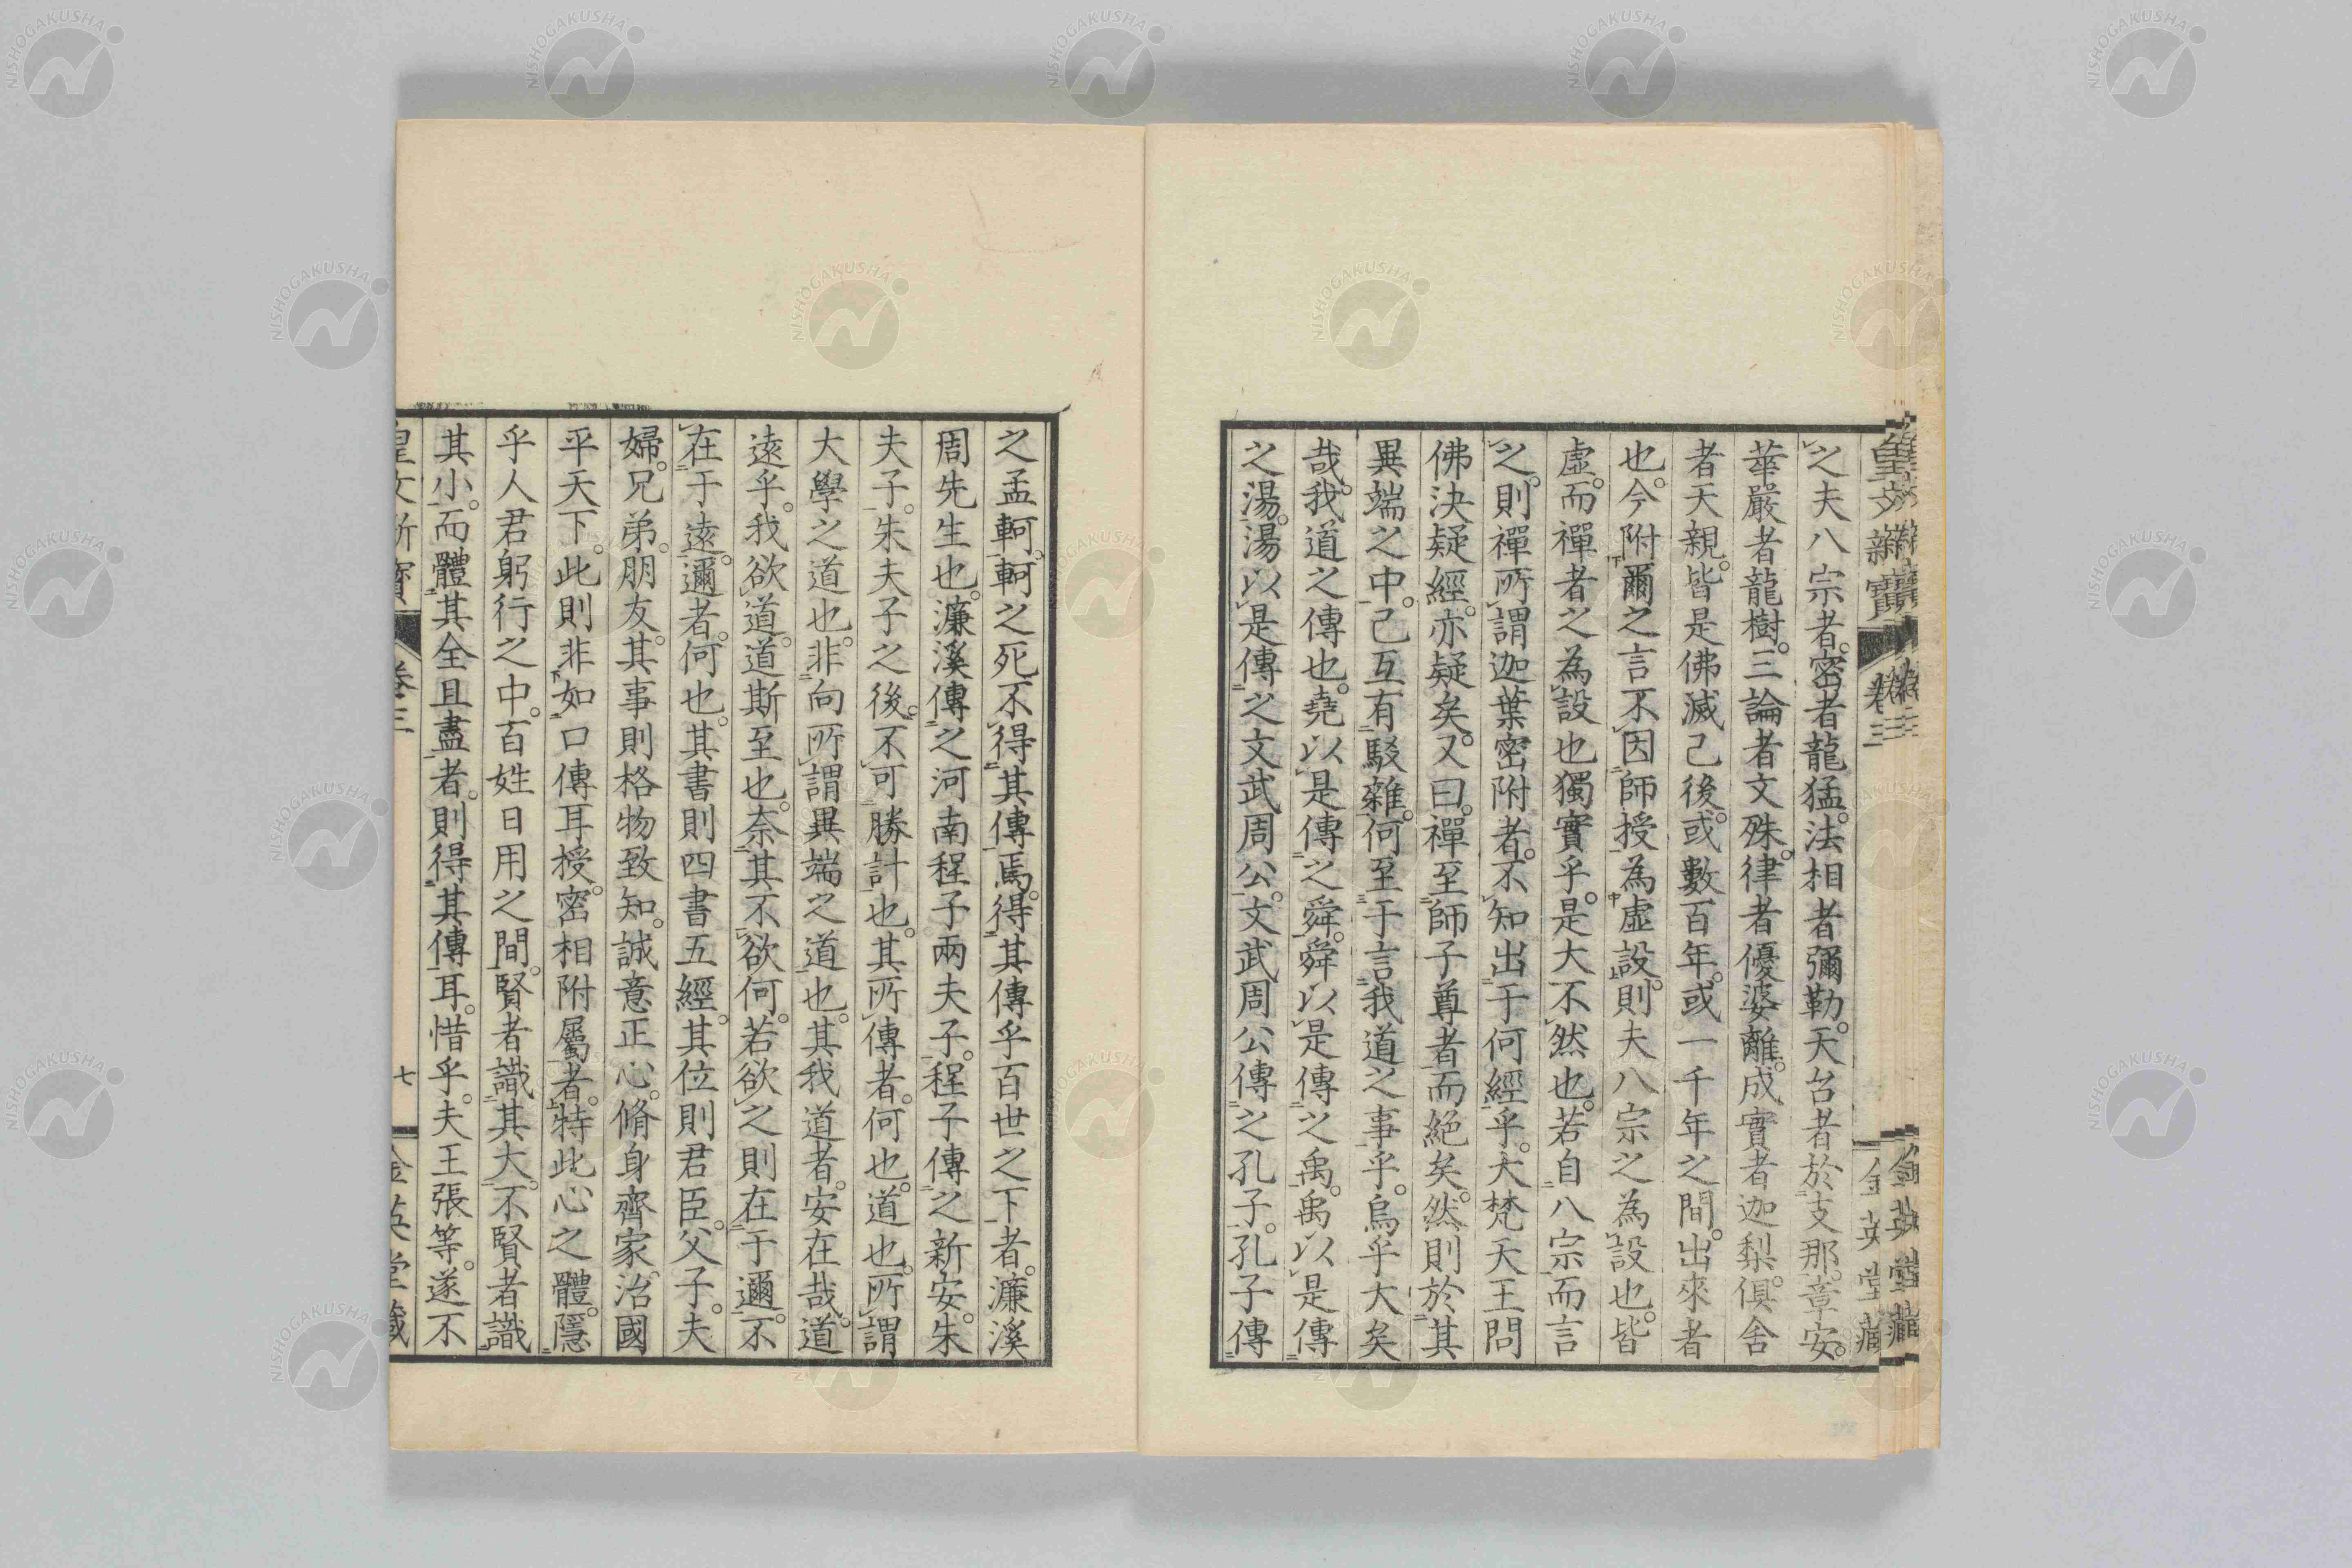 皇文新寶 卷三 金英堂藏
之夫八宗者。密者龍猛。法相者彌勒。天台者於支那。章安。
華嚴者龍樹。三論者文殊。律者優婆離。成實者迦梨。俱舍
者天親。皆是佛滅己後。或數百年。或一千年之間。出來者
也。今附爾之言不因師授為虛設。則夫八宗之為設也。皆
虛。而禪者之為設也獨實乎。是大不然也。若自八宗而言
之。則禪所謂迦葉密附者。不知出于何經乎。大梵天王問
佛決疑經。亦疑矣。又曰。禪至師子尊者而絕矣。然則於其
異端之中。己互有駁雜。何至于言我道之事乎。烏乎大矣
哉。我道之傳也。堯以是傳之舜。舜以是傳之禹。禹以是傳
之湯。湯以是傳之文武周公。文武周公傳之孔子。孔子傳
之孟軻。軻之死不得其傳焉。得其傳乎百世之下者。濂溪
周先生也。濂溪傳之河南程子兩夫子。程子傳之新安。朱
夫子。朱夫子之後。不可勝計也。其所傳者。何也。道也。所謂
大學之道也。非向所謂異端之道也。其我道者。安在哉。道
遠乎。我欲道。道斯至也。奈其不欲何。若欲之則在于邇。不
在于遠。邇者。何也。其書則四書五經。其位則君臣。父子。夫
婦。兄弟。朋友。其事則格物致知。誠意正心。脩身齊家。治國
平天下。此則非如口傳耳授。密相附屬者。特此心之體。隱
乎人君躬行之中。百姓日用之間。賢者識其大。不賢者識
其小。而體其全且盡者。則得其傳耳。惜乎。夫王張等。遂不
皇文新寶 卷三 七 金英堂藏
NISHOGAKUSHA